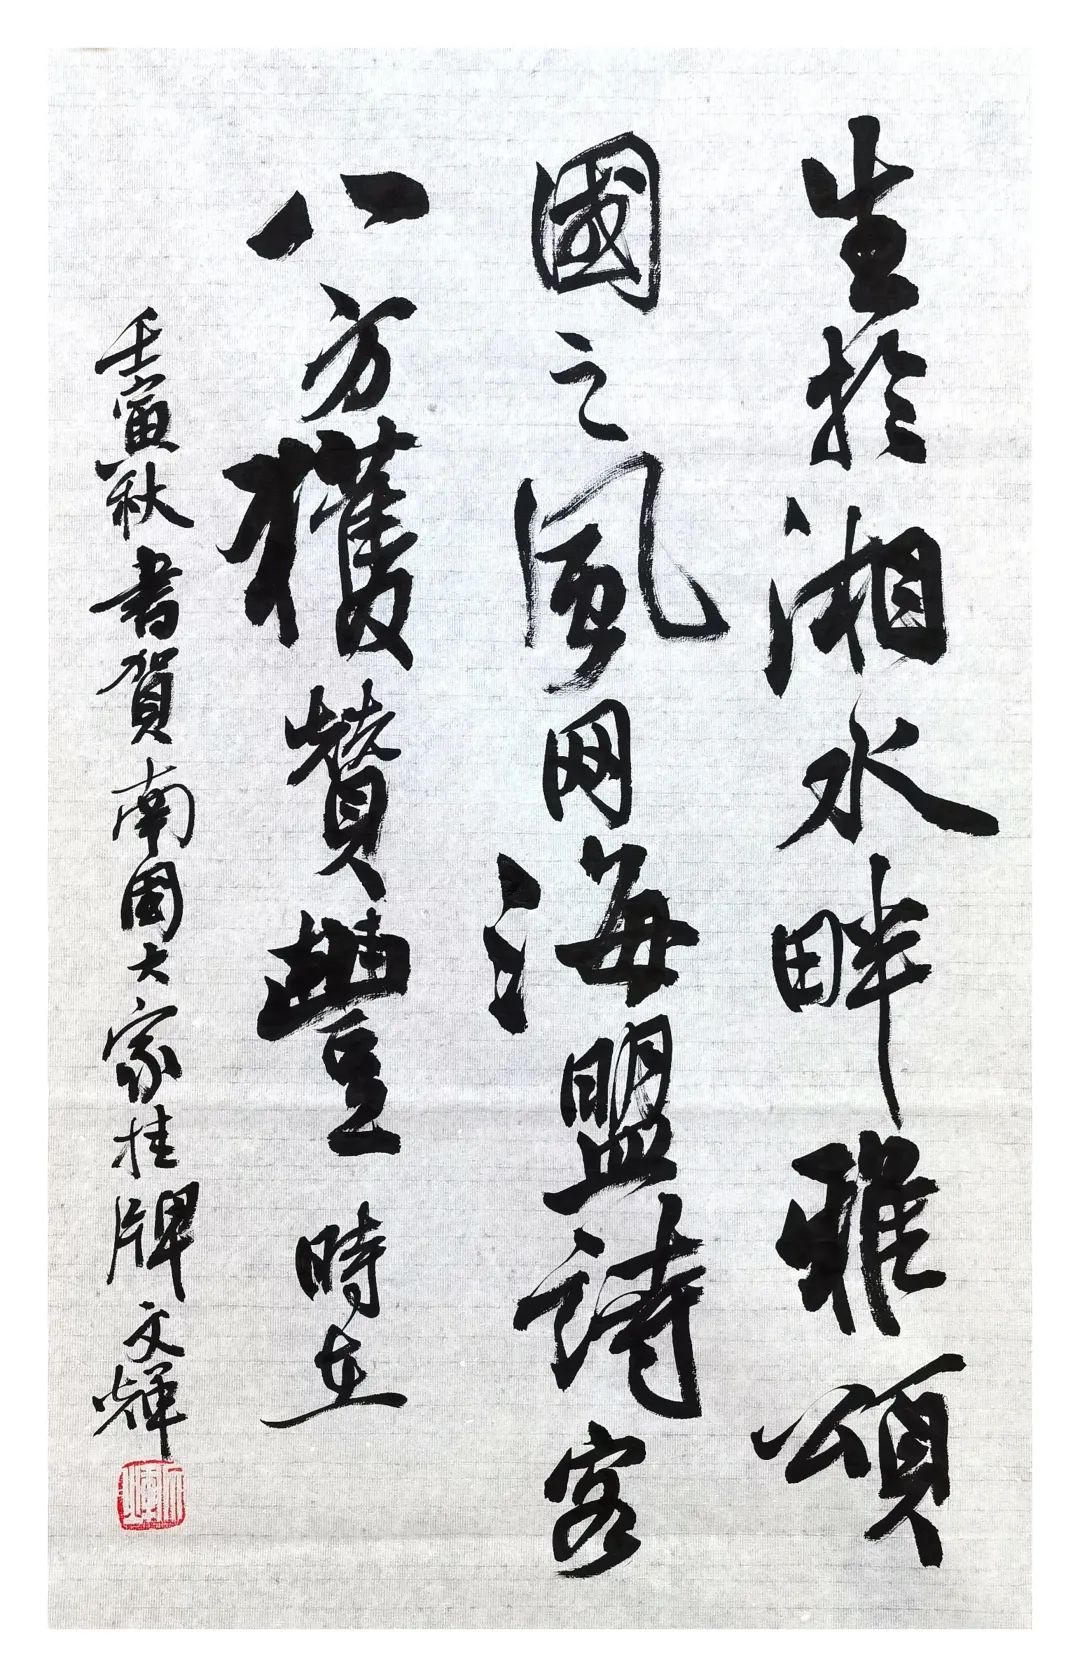 生於湘水畔雅頌
國之風网海盟詩客
八方獲贊豐時立
壬寅秋書賀南國大家挂牌文輝